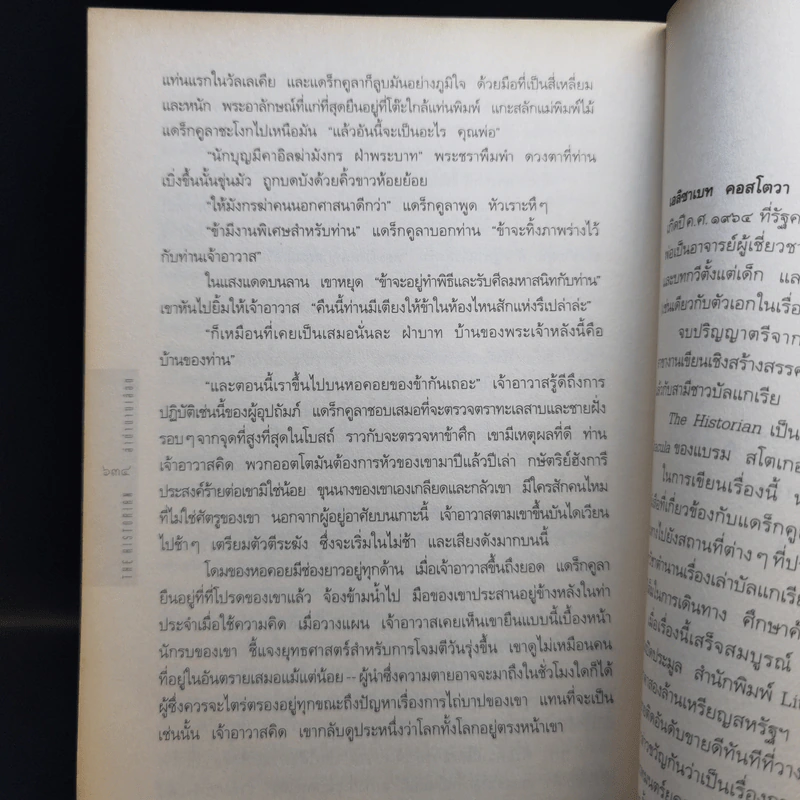 แท่นแรกในวัลเลเคีย และแดร็กคูลาก็ลูบมันอย่างภูมิใจ ด้วยมือที่เป็นสี่เหลี่ยม
และหนัก พระอาลักษณ์ที่แก่ที่สุดยืนอยู่ที่โต๊ะใกล้แท่นพิมพ์ แกะสลักแม่พิมพ์ไม้
แดร็กคูลาชะโงกไปเหนือมัน “แล้วอันนี้จะเป็นอะไร คุณพ่อ”
“นักบุญมีคาอิลฆ่ามังกร ฝ่าพระบาท” พระชราพึมพำ ดวงตาที่ท่าน
เบิ่งขึ้นนั้นขุ่นมัว ถูกบดบังด้วยคิ้วขาวห้อยย้อย
“ให้มังกรฆ่าคนนอกศาสนาดีกว่า” แดร็กคูลาพูด หัวเราะหึๆ
“ข้ามีงานพิเศษสำหรับท่าน” แดร็กคูลาบอกท่าน “ข้าจะทิ้งภาพร่างไว้
กับท่านเจ้าอาวาส”
ในแสงแดดบนลาน เขาหยุด “ข้าจะอยู่ทำพิธีและรับศีลมหาสนิทกับท่าน”
เขาหันไปยิ้มให้เจ้าอาวาส “คืนนี้ท่านมีเตียงให้ข้าในห้องไหนสักแห่งรึเปล่าล่ะ”
“ก็เหมือนที่เคยเป็นเสมอนั่นละ ฝ่าบาท บ้านของพระเจ้าหลังนี้คือ
บ้านของท่าน”
“และตอนนี้เราขึ้นไปบนหอคอยของข้ากันเถอะ” เจ้าอาวาสรู้ดีถึงการ
ปฏิบัติเช่นนี้ของผู้อุปถัมภ์ แดร็กคูลาชอบเสมอที่จะตรวจตราทะเลสาบและชายฝั่ง
รอบๆ จากจุดที่สูงที่สุดในโบสถ์ ราวกับจะตรวจหาข้าศึก เขามีเหตุผลที่ดี ท่าน
เจ้าอาวาสคิด พวกออตโตมันต้องการหัวของเขามาปีแล้วปีเล่า กษัตริย์ฮังการี
ประสงค์ร้ายต่อเขามิใช่น้อย ขุนนางของเขาเองเกลียดและกลัวเขา มีใครสักคนไหม
ที่ไม่ใช่ศัตรูของเขา นอกจากผู้อยู่อาศัยบนเกาะนี้ เจ้าอาวาสตามเขาขึ้นบันไดเวียน
ไปช้าๆ เตรียมตัวตีระฆัง ซึ่งจะเริ่มในไม่ช้า และเสียงดังมากบนนี้
โดมของหอคอยมีช่องยาวอยู่ทุกด้าน เมื่อเจ้าอาวาสขึ้นถึงยอด แดร็กคูลา
ยืนอยู่ที่ที่โปรดของเขาแล้ว จ้องข้ามน้ำไป มือของเขาประสานอยู่ข้างหลังในท่า
ประจำเมื่อใช้ความคิด เมื่อวางแผน เจ้าอาวาสเคยเห็นเขายืนแบบนี้เบื้องหน้า
นักรบของเขา ชี้แจงยุทธศาสตร์สำหรับการโจมตีวันรุ่งขึ้น เขาดูไม่เหมือนคน
ที่อยู่ในอันตรายเสมอแม้แต่น้อย -- ผู้นำซึ่งความตายอาจจะมาถึงในชั่วโมงใดก็ได้
ผู้ซึ่งควรจะไตร่ตรองอยู่ทุกขณะถึงปัญหาเรื่องการไถ่บาปของเขา แทนที่จะเป็น
เช่นนั้น เจ้าอาวาสคิด เขากลับดูประหนึ่งว่าโลกทั้งโลกอยู่ตรงหน้าเขา
๖๓๔
THE HISTORIAN
เอลิซาเบท คอสโตวา
เกิดปี ค.ศ. ๑๙๖๔ ที่รัฐค
พ่อเป็นอาจารย์ผู้เชี่ยวชา
และบทกวีตั้งแต่เด็ก และ
เช่นเดียวกับตัวเอกในเรื่อ
จบปริญญาตรีจาก
งานเขียนเชิงสร้างสรรค
กับสามีชาวบัลแกเรีย
The Historian เป็น
ของแบรม สโตเกอ
ในการเขียนเรื่องนี้
ที่เกี่ยวข้องกับแดร็กคู
ไปยังสถานที่ต่างๆ ที่ป
ตำนานเรื่องเล่าบัลแกเรีย
ในการเดินทาง ศึกษาค้
เมื่อเรื่องนี้เสร็จสมบูรณ์
ประมูล สำนักพิมพ์ Lit
สองล้านเหรียญสหรัฐฯ
ติดอันดับขายดีทันทีที่วาง
ขวัญกันว่าเป็นเรื่องกา